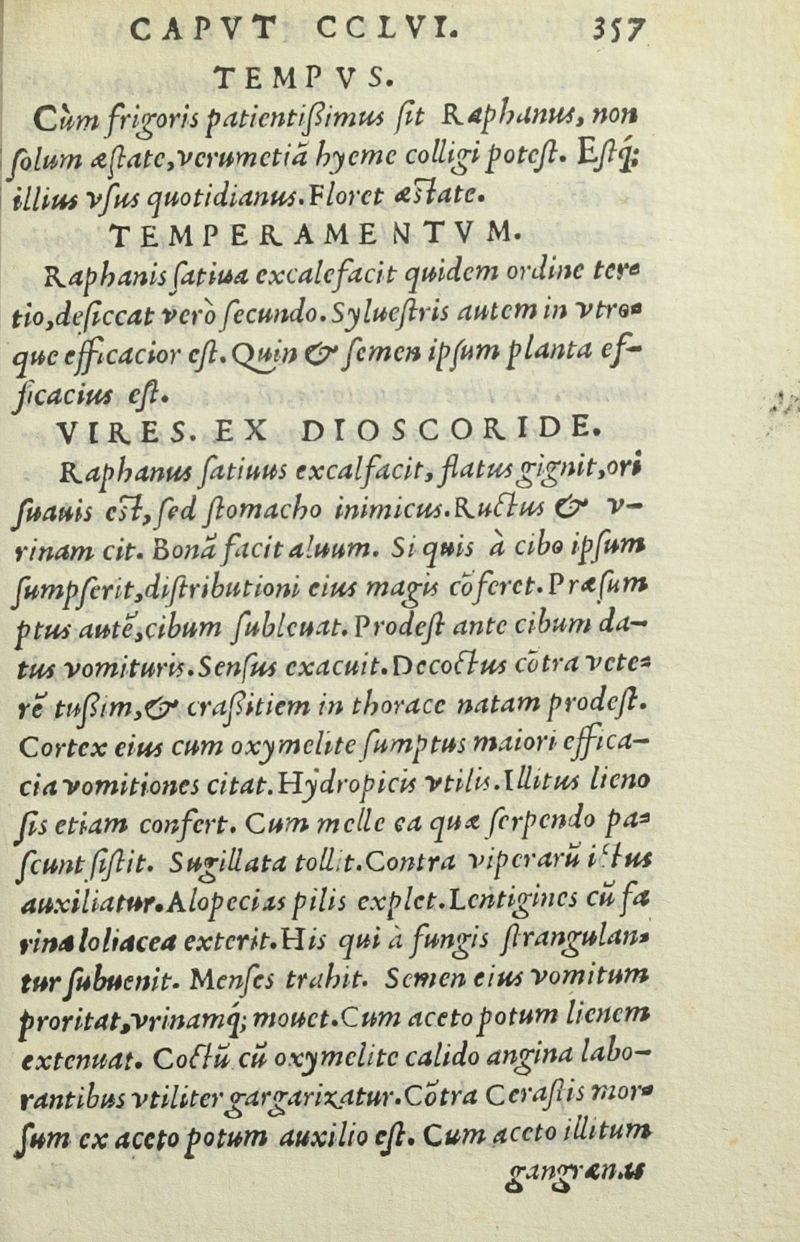 CAPVT CCLVI. 357
TEMPVS.
Cùm frigoris patientißimus ſit Raphanus, non
ſolum æſtate, verumetiã hyeme colligi poteſt. Eſtq́;
illius vſus quotidianus. Floret æſtate.
TEMPERAMENTVM.
Raphanis ſatiua excalefacit quidem ordine ter=
tio, deſiccat verò ſecundo. Sylueſtris autem in vtro=
que efficacior eſt. Quin & ſemen ipſum planta ef-
ficacius eſt.
VIRES. EX DIOSCORIDE.
Raphanus ſatiuus excalfacit, flatus gignit, ori
ſuauis eſt, ſed ſtomacho inimicus. Ructus & v-
rinam cit. Bonã facit aluum. Si quis à cibo ipſum
ſumpſerit, diſtributioni eius magis cõferet. Præſum
ptus autẽ, cibum ſubleuat. Prodeſt ante cibum da-
tus vomituris. Senſus exacuit. Decoctus cõtra vete=
rẽ tußim, & craßitiem in thorace natam prodeſt.
Cortex eius cum oxymelite ſumptus maiori effica-
cia vomitiones citat. Hydropicis vtilis. Illitus lieno
ſis etiam confert. Cum melle ea quæ ſerpendo pa=
ſcunt ſiſtit. Sugillata tollit. Contra viperarũ ictus
auxiliatur. Alopecias pilis explet. Lentigines cũ fa
rina loliacea exterit. His qui à fungis ſtrangulan=
tur ſubuenit. Menſes trahit. Semen eius vomitum
proritat, vrinamq́; mouet. Cum aceto potum lienem
extenuat. Coctũ cũ oxymelite calido angina labo-
rantibus vtiliter gargarizatur. Cõtra Ceraſtis mor=
ſum ex aceto potum auxilio eſt. Cum aceto illitum
gangrænas